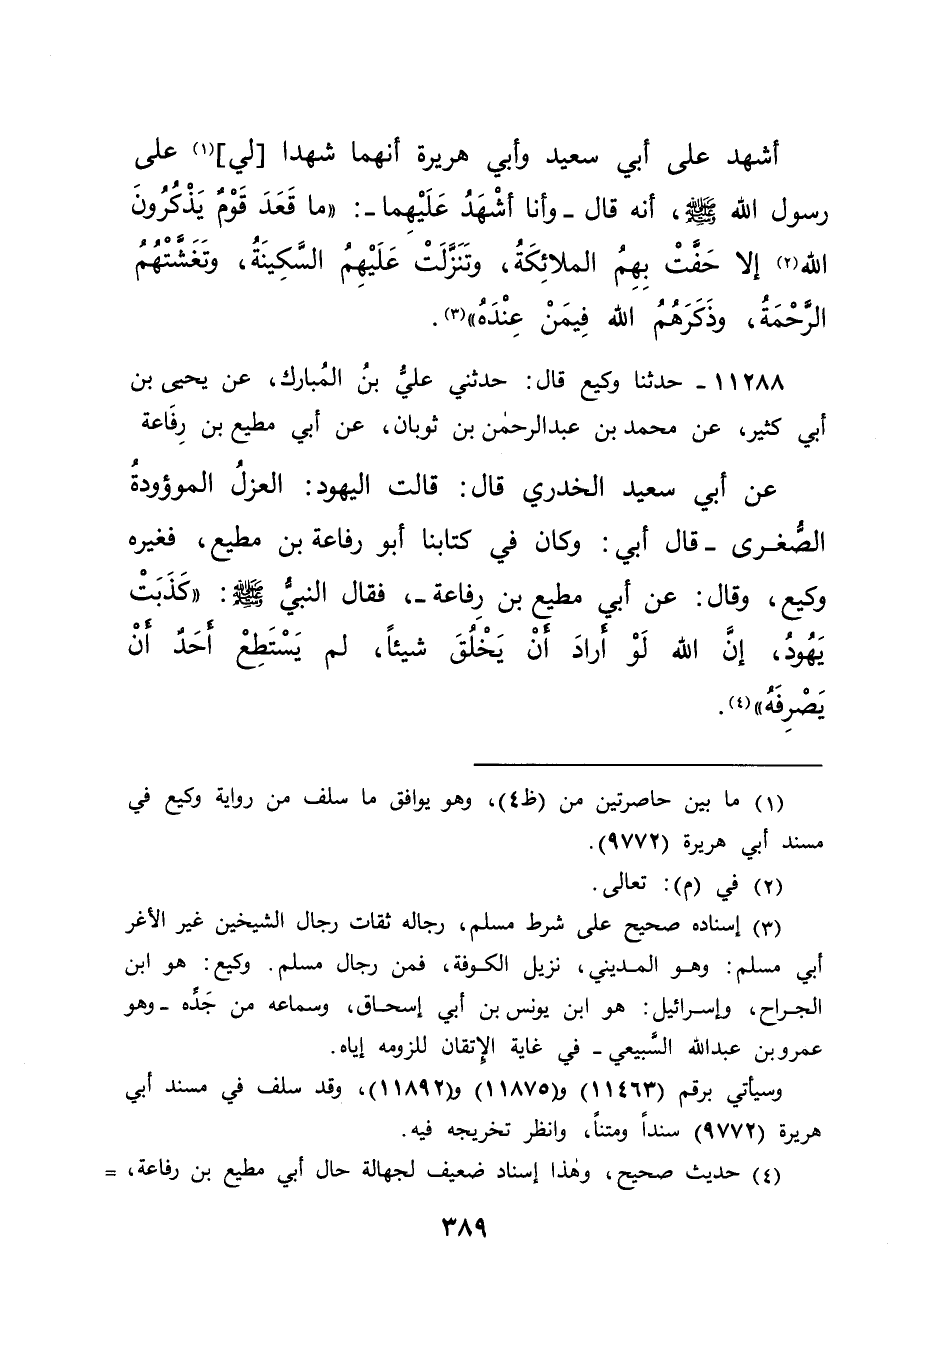 أشهد على أبي سعيد وأبي هريرة أنهما شهدا [لي](١) على
رسول الله ﷺ، أنه قال ـ وأنا أشْهَدُ عَلَيْهِما ـ: «ما قَعَدَ قَوْمٌ يَذْكُرُونَ
الله(٢) إلا حَفَّتْ بِهِمُ الملائِكَةُ، وتَنَزَّلَتْ عَلَيْهِمُ السَّكِينَةُ، وتَغَشَّتْهُمُ
الرَّحْمَةُ، وذَكَرَهُمُ الله فِيمَنْ عِنْدَهُ»(٣).
١١٢٨٨ ـ حدثنا وكيع قال: حدثني عليُّ بنُ المُبارك، عن يحيى بن
أبي كثير، عن محمد بن عبدالرحمٰن بن ثوبان، عن أبي مطيع بن رِفَاعة
عن أبي سعيد الخدري قال: قالت اليهود: العزلُ الموؤودةُ
الصُّغرى ـ قال أبي: وكان في كتابنا أبو رفاعة بن مطيع، فغيره
وكيع، وقال: عن أبي مطيع بن رِفاعة ـ، فقال النبيُّ ﷺ: «كَذَبَتْ
يَهُودُ، إنَّ الله لَوْ أَرادَ أَنْ يَخْلُقَ شيئاً، لم يَسْتَطِعْ أَحَدٌ أَنْ
يَصْرِفَهُ»(٤).
(١) ما بين حاصرتين من (ظ٤)، وهو يوافق ما سلف من رواية وكيع في
مسند أبي هريرة (٩٧٧٢).
(٢) في (م): تعالى.
(٣) إسناده صحيح على شرط مسلم، رجاله ثقات رجال الشيخين غير الأغر
أبي مسلم: وهو المديني، نزيل الكوفة، فمن رجال مسلم. وكيع: هو ابن
الجراح، وإسرائيل: هو ابن يونس بن أبي إسحاق، وسماعه من جَدِّه ـ وهو
عمرو بن عبدالله السَّبيعي ـ في غاية الإتقان للزومه إياه.
وسيأتي برقم (١١٤٦٣) و(١١٨٧٥) و(١١٨٩٢)، وقد سلف في مسند أبي
هريرة (٩٧٧٢) سنداً ومتناً، وانظر تخريجه فيه.
(٤) حديث صحيح، وهٰذا إسناد ضعيف لجهالة حال أبي مطيع بن رفاعة، =
٣٨٩